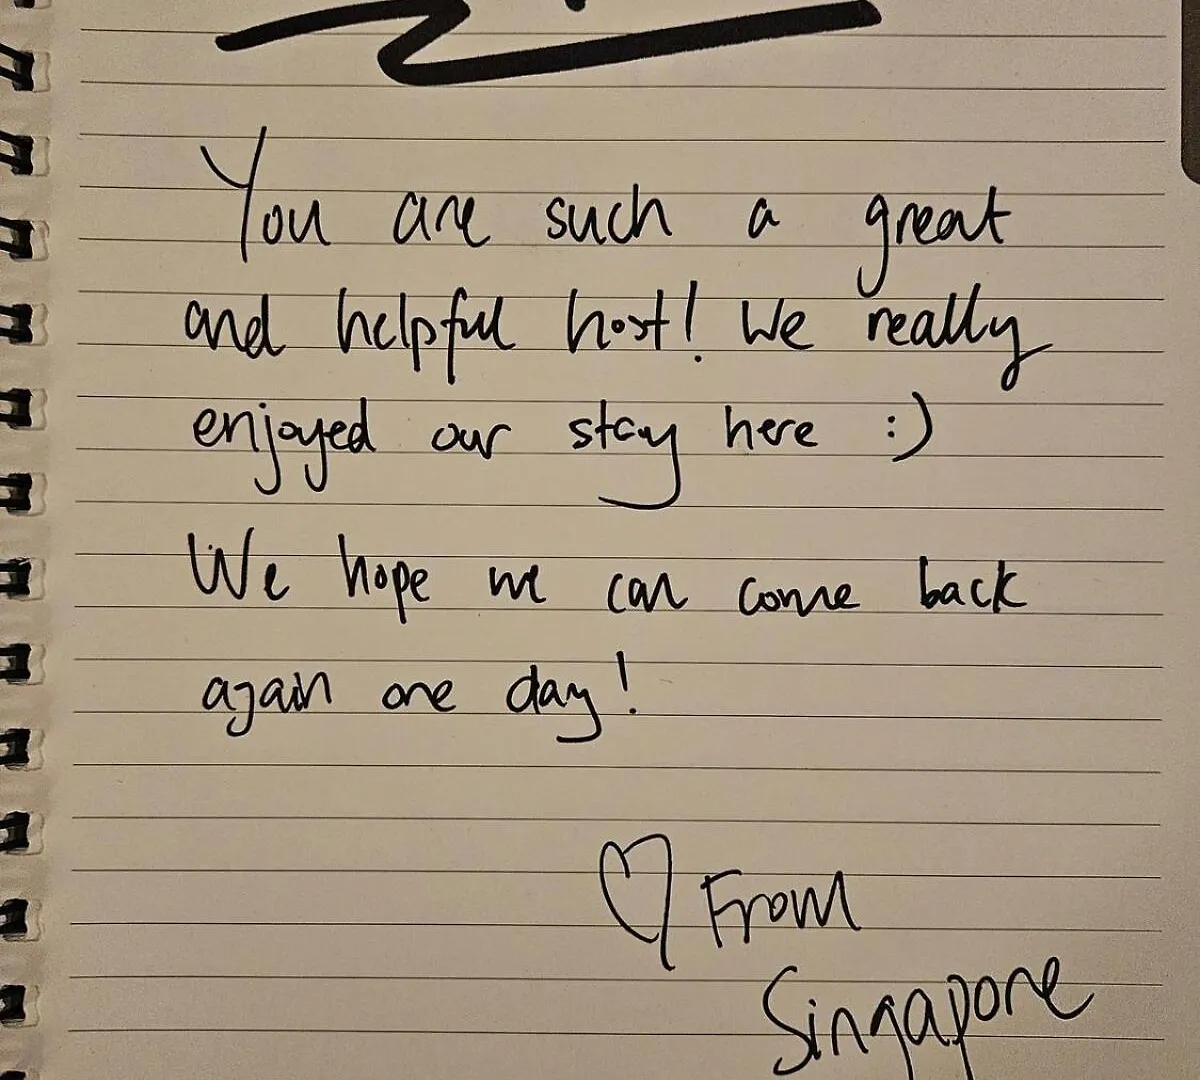 You are such a great
and helpful host! We really
enjoyed our stay here :)
We hope we can come back
again one day!
♡ From
Singapore